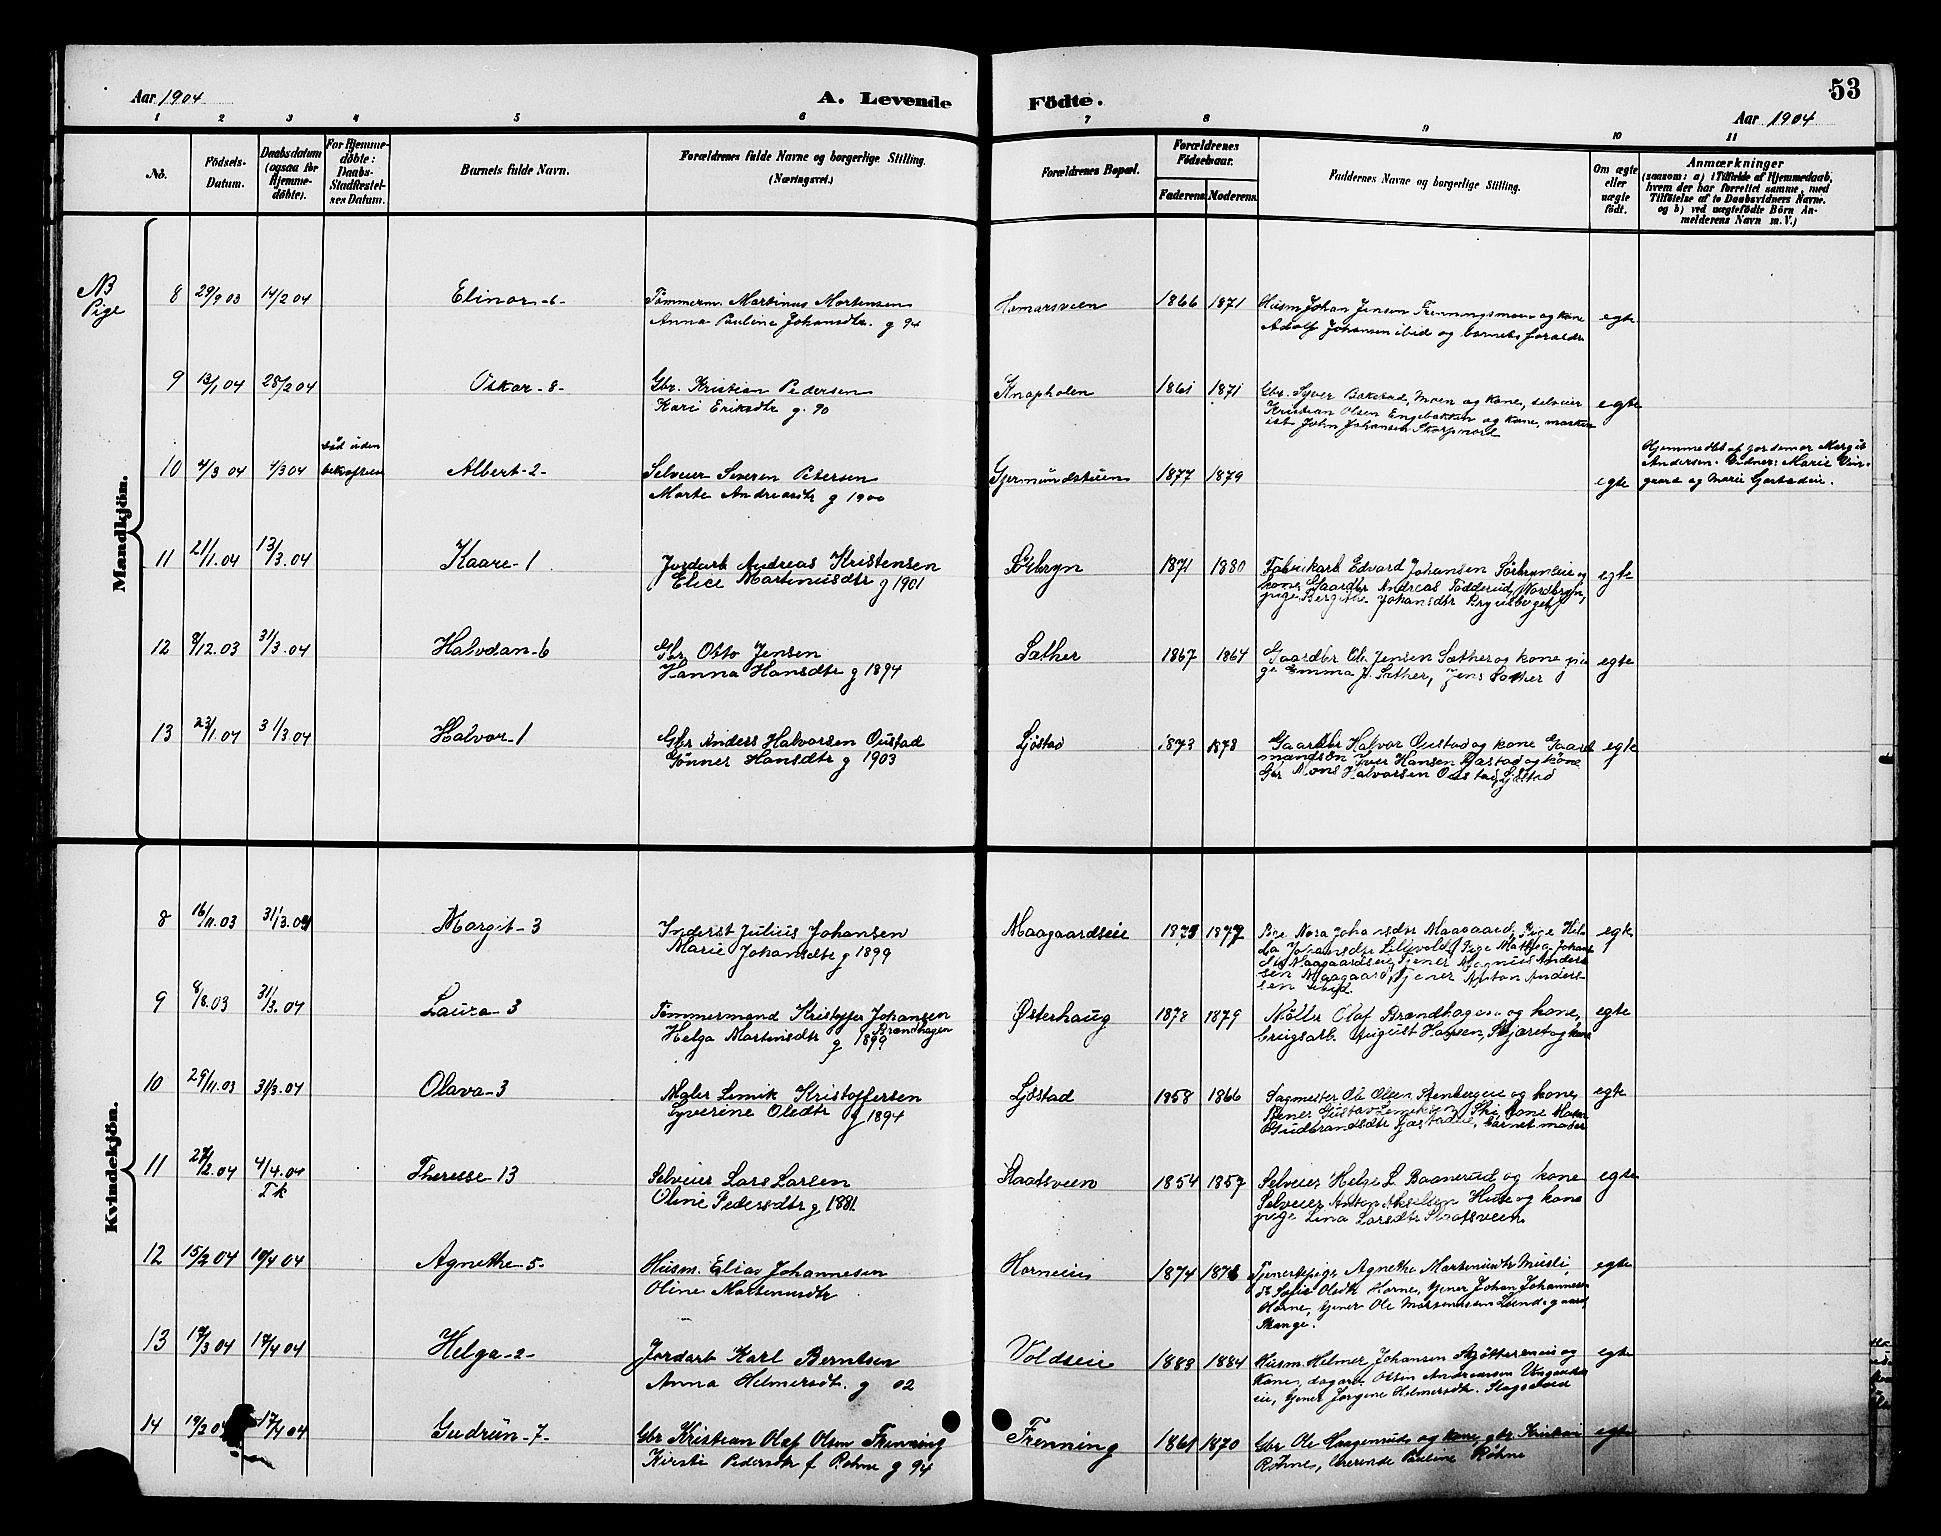 Aar 1904
A. Levende
Födte.
53
Aar 1904
1 2 3 4 5 6 7 8 9 10 11
No.
Födsels-
Datum.
Daabsdatum
(ogsaa for
Hjemme-
døbte).
For Hjemme-
døbte:
Daabs-
Stadfæstel-
ses Datum.
Barnets fulde Navn.
Forældrenes fulde Navne og borgerlige Stilling.
(Næringsvei.)
Forældrenes Bopæl.
Forældrenes
Födselsaar.
Faderens Moderens
Faddernes Navne og borgerlige Stilling.
Om ægte
eller
uægte
født.
Anmærkninger
(saasom: a) i Tilfælde af Hjemmedaab,
hvem der har forrettet samme, med
Tilföielse af to Daabsvidners Navne,
og b) ved uægtefödte Börn An-
melderens Navn m. V.)
Mandkjön.
NB
Pige
8 29/9 03 14/2 04 Elinor -6-
Tömmerm. Martinus Mortensen
Anna Pauline Johansdtr. g 94
Homarsveen 1866 1871
Husm Johan Jensen Frenningsmoen og kone
Adolf Johansen ibid og barnets forældre
egte
9 13/1 04 28/2 04 Oskar -8-
Gbr. Kristian Pedersen
Kari Eriksdtr g. 90
Knapholen 1861 1871
Gbr. Syver Bakstad, Moen og kone, selveier
Kristian Olsen Engebakken og kone,
John Johansen Skorpnord
egte
10 4/3 04 4/3 04
död uden
bekræftelse
Albert -2-
Selveier Severen Petersen
Marte Andreasdtr g 1900
Gjermundsteien 1877 1879
egte
Hjemmedöbt af jordemor Margit
Andersen. Vidner: Marie Vin-
gaard og Marie Gjortadeie.
11 21/1.04 13/3.04 Kaare -1
Jordarb Andreas Kristensen
Elice Martinusdtr g 1901
Sörbryn 1871 1880
Fabrikarb Edvard Johansen Sörbryneie og
kone, Gaardbr Andreas Födderud, Nordbryn,
pige Bergithe Johansdtr
egte
12 8/12.03 31/3.04 Halvdan -6
Gbr Otto Jensen
Hanna Hansdtr g 1894
Sæther 1867 1864
Gaardbr Ole Jensen Sæther og kone pi
ge Emma J. Sæther, Jens Sæther
egte
13 23/1.04 31/3.04 Halvor -1
Gbr Anders Halvorsen Oustad
Gönner Hansdtr g 1903
Ljöstad 1873 1878
Gaardbr Halvor Oustad og kone Gaard
mandsön Iver Hansen og kone
Gbr Mons Halvorsen Oustad, Ljöstad
egte
Kvindekjön.
8 16/11.03 31/3.04 Margit -3
Inderst Julius Johansen
Marie Johansdtr g 1899
Maagaardseie 1875 1877
Pige Nora Johansdtr Maagaard, Pige Hil
da Johansdtr Lillevold, Pige Mathea Johans
dtr Maagaardseie, Tjener Magnus Ander
sen Maagaard, Tjener Anton Ander
sen ibid.
egte
9 8/8.03 31/3.04 Laura -3
Tömmermand Kristoffer Johansen
Brændhagen
Helga Martinsdtr g 1899
Østerhaug 1878 1879
Möller Olaf Brændhagen og kone,
brugsarb. August Hansen, Skjæret og kone
egte
10 29/11.03 31/3.04 Olava -3
Maler Lemik Kristoffersen
Syverine Olsdtr g 1894
Ljöstad 1858 1866
Sagmester Ole Olsen Stenbergeie og kone,
Tjener Gustav Lemiksen Ski, kone Maren
Gudbrandsdtr barnets moder
egte
11 27/2.04 4/4.04
I k
Therese -13
Selveier Lars Larsen
Oline Pedersdtr g 1881
Staatsveen 1854 1857
Selveier Helge L. Baanerud og kone
Selveier Anton Akselsen Huse og kone
pige Lina Larsdtr Staatsveen
egte
12 15/2 04 10/4 04 Agnethe -5-
Husm. Elias Johannesen
Oline Martinusdtr
Horneeie 1874 1876
Tjenestepige Agnethe Martinusdtr Musli,
do Sofie Olsdtr Horne, tjener Johan Johannesen
Horne, tjener Ole Martinusen Lundsgaard,
Stange.
egte
13 19/3 04 17/4 04 Helga -2-
Jordarb Karl Berntsen
Anna Helmersdt. g 02
Voldseie 1883 1884
Husm. Helmer Johansen og
kone, dagarb. Olsen Andreassen
eie, tjener Jørgine Helmersdt. Slagsvold
egte
14 19/2 04 17/4 04 Gudrun -7-
Gbr Kristian Olaf Olsen Frenning
Kirsti Pedersdtr f Røhne g 94
Frenning 1861 1870
Gbr Ole Haagensrud og kone, gbr. Kristian
Røhne, lærerinde Pauline Røhne
egte